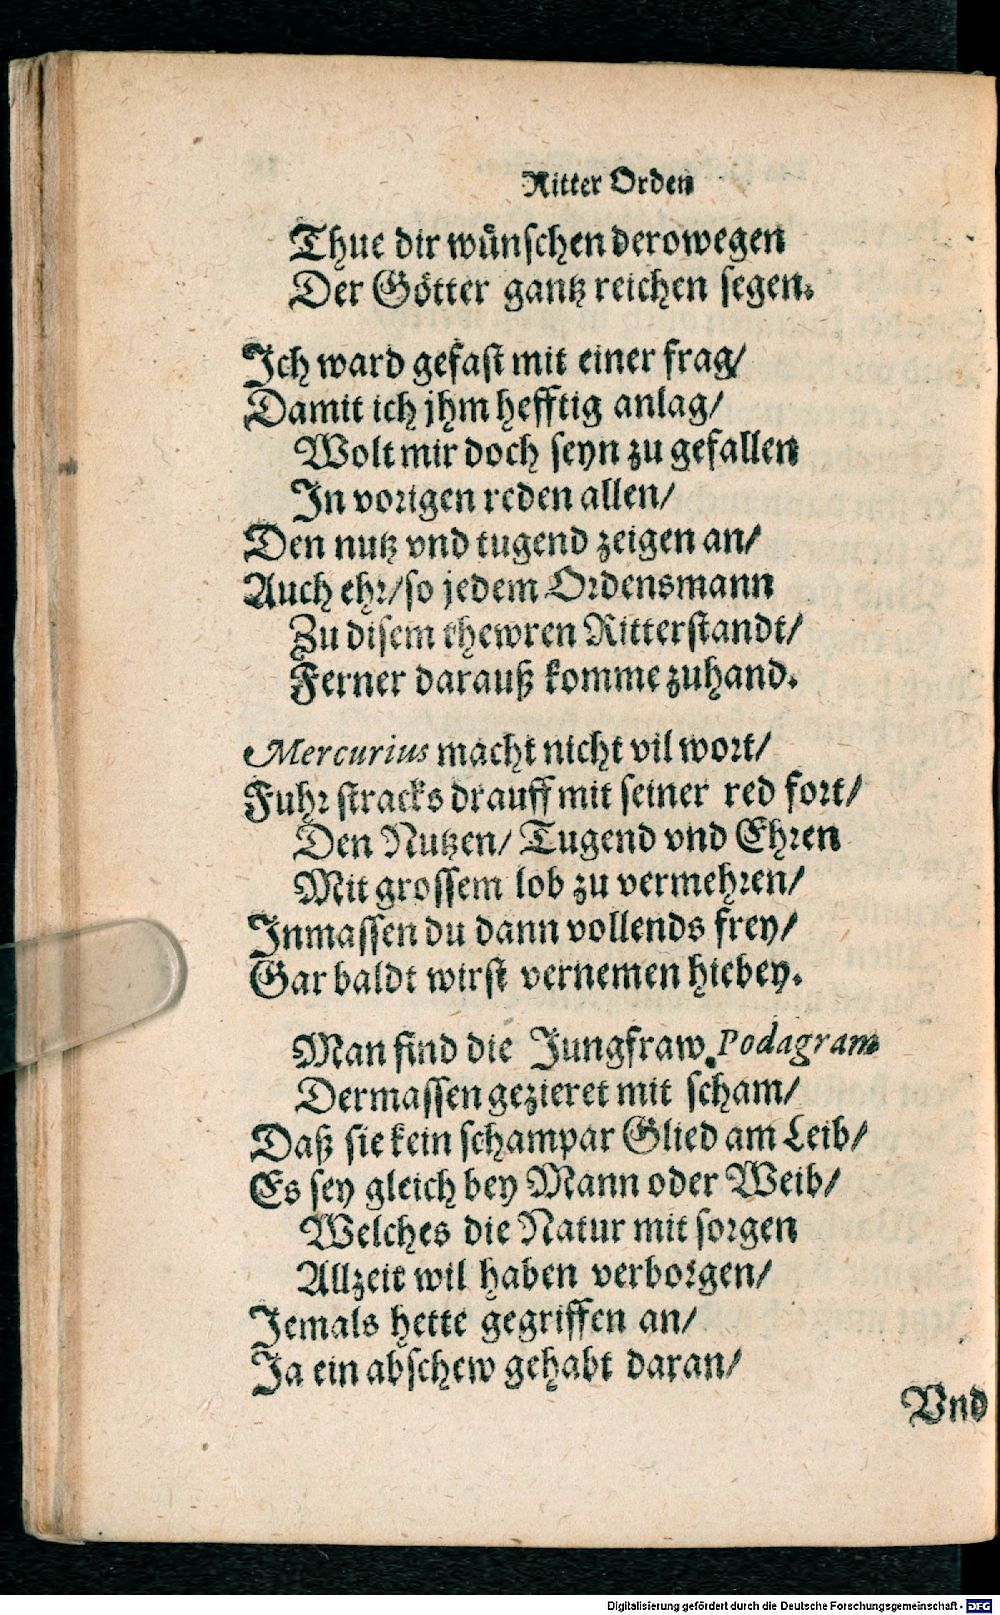 Ritter Orden
Thue dir wünschen derowegen
Der Götter gantz reichen segen.
Ich ward gefast mit einer frag/
Damit ich jhm hefftig anlag/
Wolt mir doch seyn zu gefallen
In vorigen reden allen/
Den nutz vnd tugend zeigen an/
Auch ehr/so jedem Ordensmann
Zu disem thewren Ritterstandt/
Ferner darauß komme zuhand.
Mercurius macht nicht vil wort/
Fuhr stracks drauff mit seiner red fort/
Den Nutzen/ Tugend vnd Ehren
Mit grossem lob zu vermehren/
Inmassen du dann vollends frey/
Gar baldt wirst vernemen hiebey.
Man find die Jungfraw Podagram
Dermassen gezieret mit scham/
Daß sie kein schampar Glied am Leib/
Es sey gleich bey Mann oder Weib/
Welches die Natur mit sorgen
Allzeit wil haben verborgen/
Jemals hette gegriffen an/
Ja ein abschew gehabt daran/
Vnd
Digitalisierung gefördert durch die Deutsche Forschungsgemeinschaft - DFG